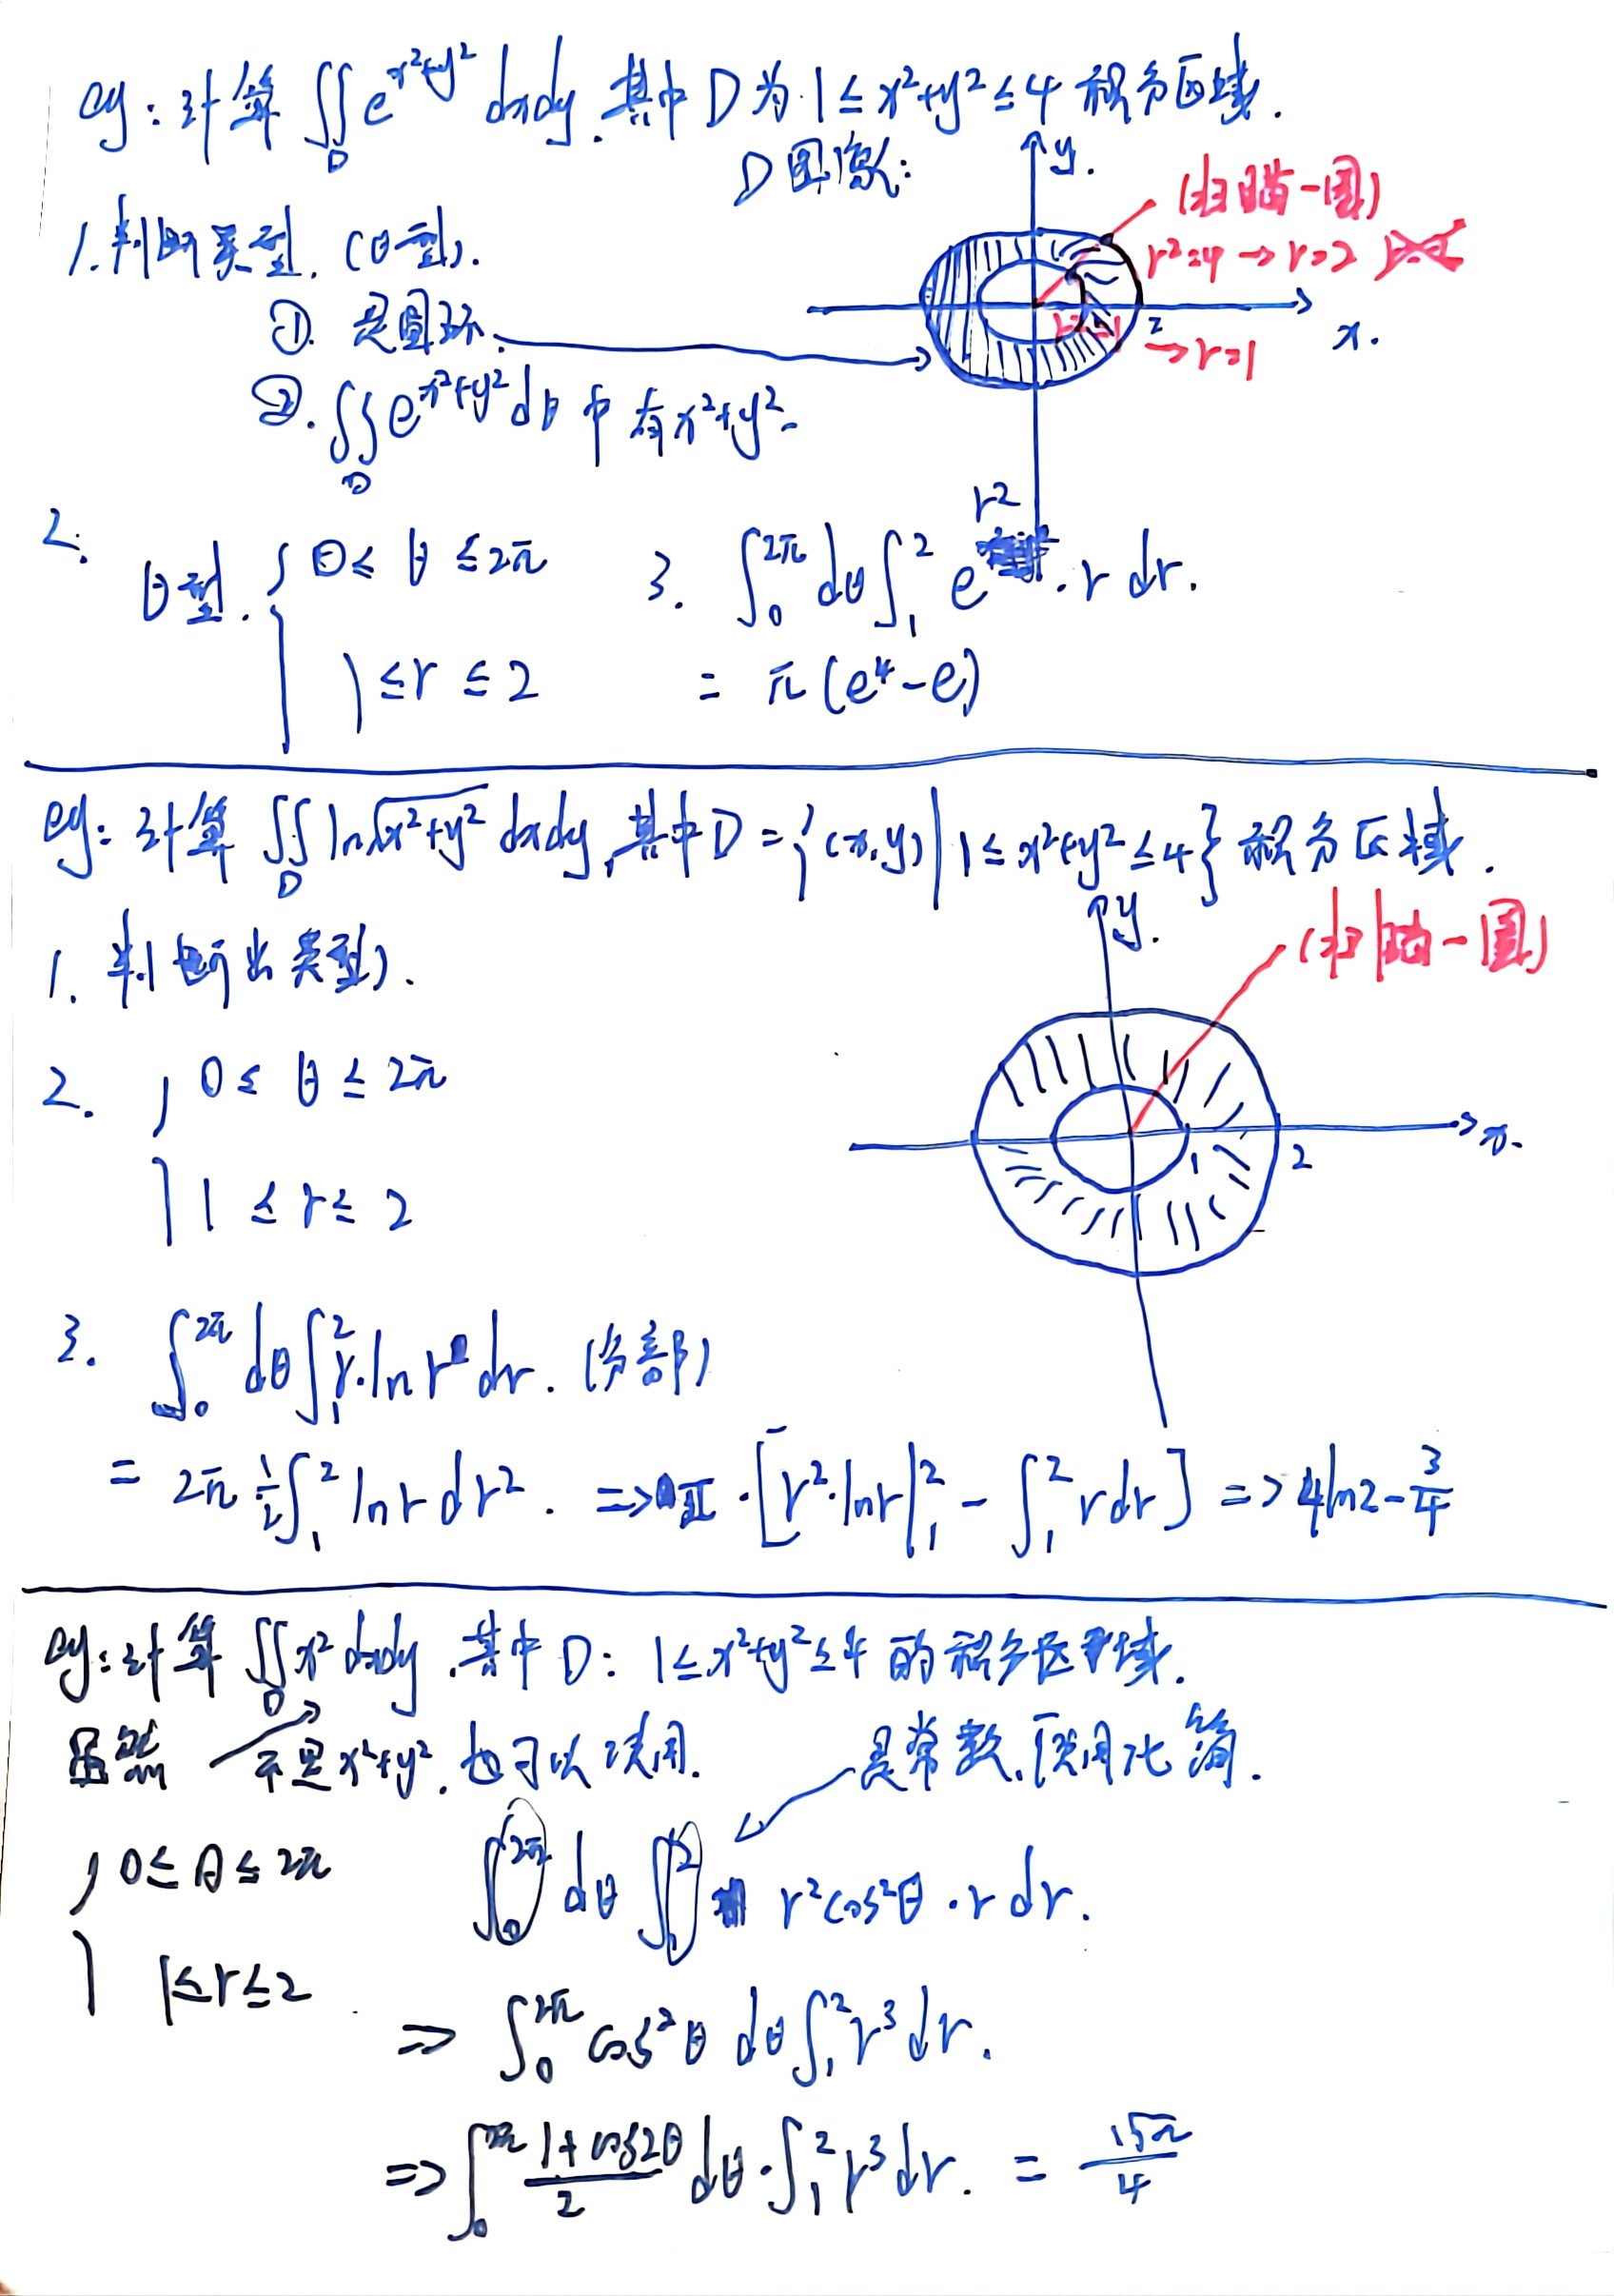 eg：计算 ∬_D e^{x²+y²} dxdy，其中 D 为 1≤x²+y²≤4 积分区域.
D图像：
y.
(扫瞄一圈)
r²=4 → r=2
1.判断类型.（θ型）.
① 是圆环.
2
→r=1
x.
②. ∬_D e^{x²+y²} dθ 中有 x²+y².
2. θ型. { 0≤θ≤2π
1≤r≤2
3. ∫_0^{2π} dθ ∫_1^2 e^{r²}·r dr.
= π(e⁴-e)
eg：计算 ∬_D ln√(x²+y²) dxdy，其中 D={(x,y)|1≤x²+y²≤4} 积分区域.
y.
(扫瞄一圈)
1. 判断出类型).
2. { 0≤θ≤2π
1≤r≤2
1
2
x.
3. ∫_0^{2π} dθ ∫_1^2 r·ln r dr.（分部）
= 2π ½∫_1^2 ln r dr². => π·[r²·lnr|_1^2 - ∫_1^2 r dr] => 4ln2-3/4
eg：计算 ∬_D x² dxdy，其中 D：1≤x²+y²≤4 的积分区域.
虽然 不是 x²+y²，也可以使用.
是常数，使用化简.
{ 0≤θ≤2π
1≤r≤2
∫_0^{2π} dθ ∫_1^2 r²cos²θ·r dr.
=> ∫_0^{2π} cos²θ dθ ∫_1^2 r³ dr.
=> ∫_0^{2π} (1+cos2θ)/2 dθ·∫_1^2 r³ dr. = 15π/4